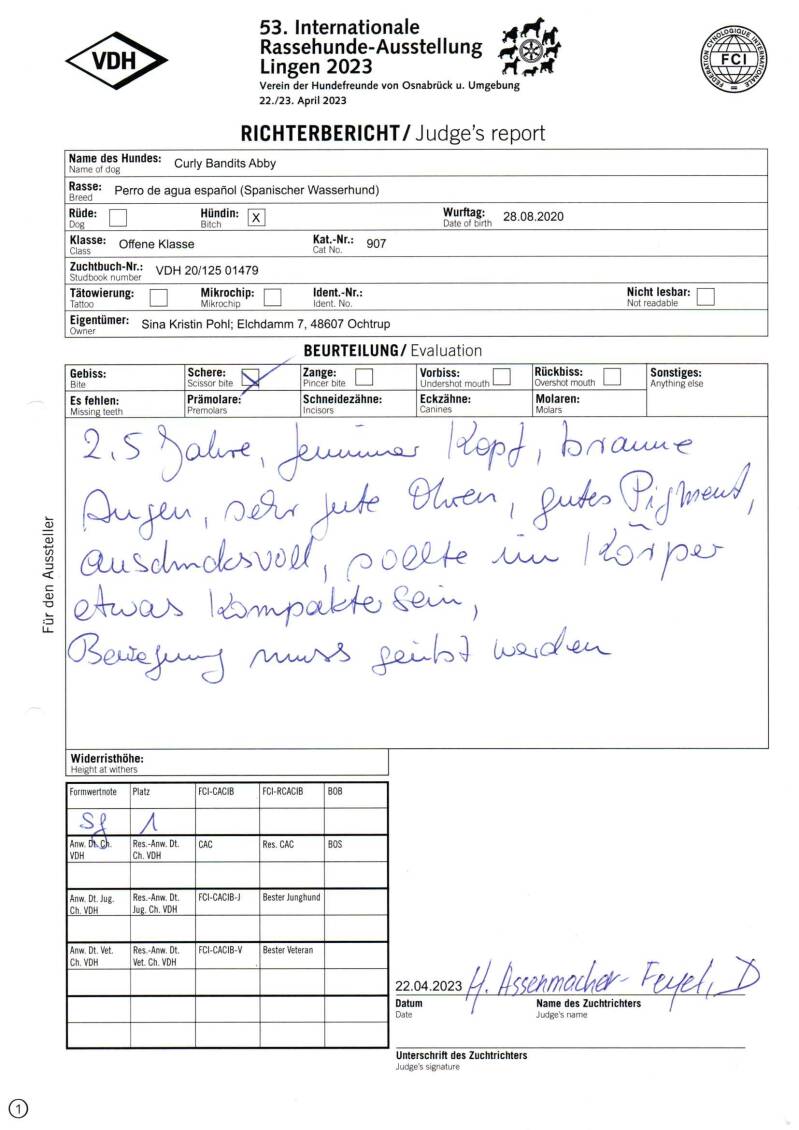 VDH
53. Internationale
Rassehunde-Ausstellung
Lingen 2023
Verein der Hundefreunde von Osnabrück u. Umgebung
22./23. April 2023
FEDERATION CYNOLOGIQUE INTERNATIONALE
FCI
RICHTERBERICHT/ Judge's report
Name des Hundes: Curly Bandits Abby
Name of dog
Rasse: Perro de agua español (Spanischer Wasserhund)
Breed
Rüde: Hündin: X Wurftag: 28.08.2020
Dog Bitch Date of birth
Klasse: Offene Klasse Kat.-Nr.: 907
Class Cat No.
Zuchtbuch-Nr.: VDH 20/125 01479
Studbook number
Tätowierung: Mikrochip: Ident.-Nr.: Nicht lesbar:
Tattoo Mikrochip Ident. No. Not readable
Eigentümer: Sina Kristin Pohl; Elchdamm 7, 48607 Ochtrup
Owner
BEURTEILUNG/ Evaluation
Gebiss: Schere: Zange: Vorbiss: Rückbiss: Sonstiges:
Bite Scissor bite Pincer bite Undershot mouth Overshot mouth Anything else
Es fehlen: Prämolare: Schneidezähne: Eckzähne: Molaren:
Missing teeth Premolars Incisors Canines Molars
2,5 Jahre, femininer Kopf, braune
Augen, sehr gute Ohren, gutes Pigment,
ausdrucksvoll, sollte im Körper
etwas kompakter sein,
Bewegung muss geübt werden
Für den Aussteller
Widerristhöhe:
Height at withers
Formwertnote Platz FCI-CACIB FCI-RCACIB BOB
Sg 1
Anw. Dt. Ch. VDH Res.-Anw. Dt. Ch. VDH CAC Res. CAC BOS
Anw. Dt. Jug. Ch. VDH Res.-Anw. Dt. Jug. Ch. VDH FCI-CACIB-J Bester Junghund
Anw. Dt. Vet. Ch. VDH Res.-Anw. Dt. Vet. Ch. VDH FCI-CACIB-V Bester Veteran
22.04.2023 H. Assenmacher-Feyel, D
Datum Name des Zuchtrichters
Date Judge's name
Unterschrift des Zuchtrichters
Judge's signature
1